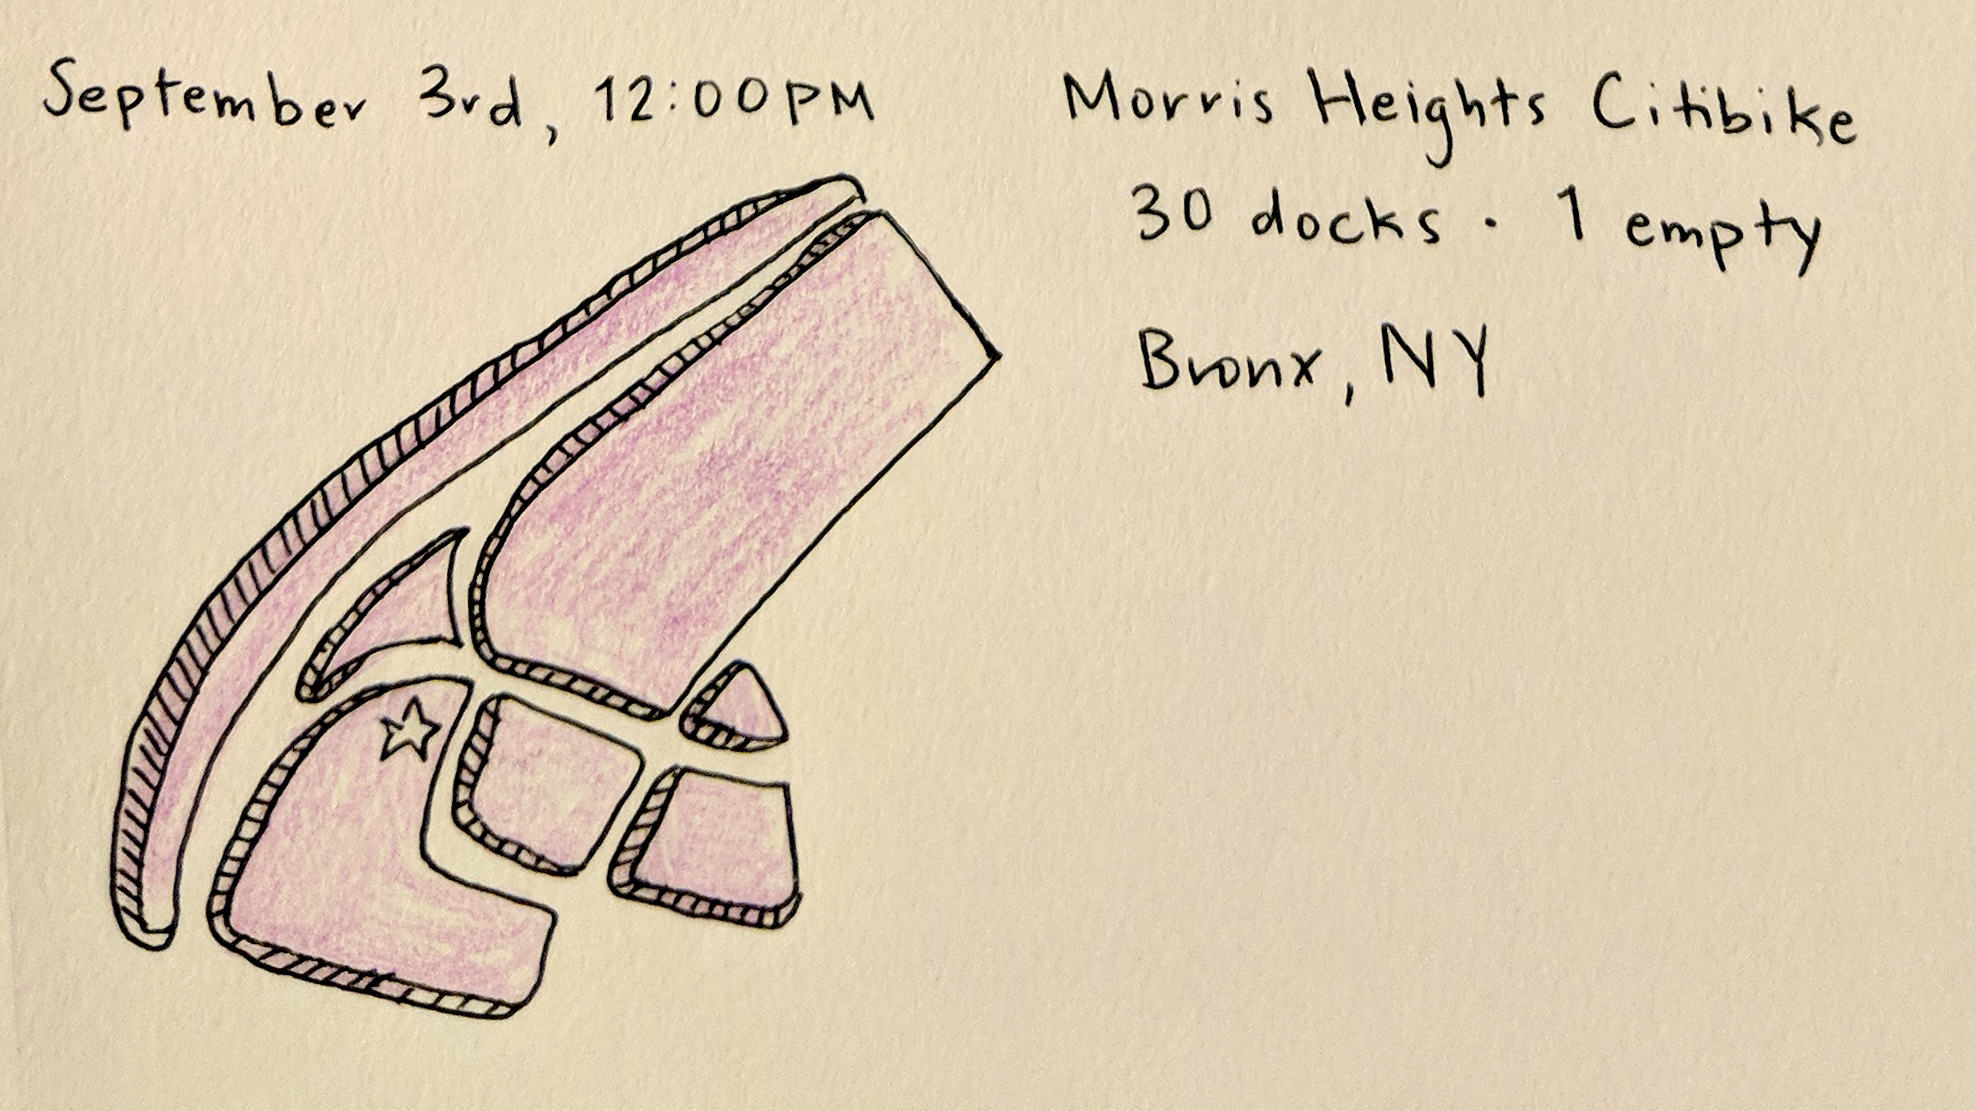 September 3rd, 12:00PM
Morris Heights Citibike
30 docks · 1 empty
Bronx, NY